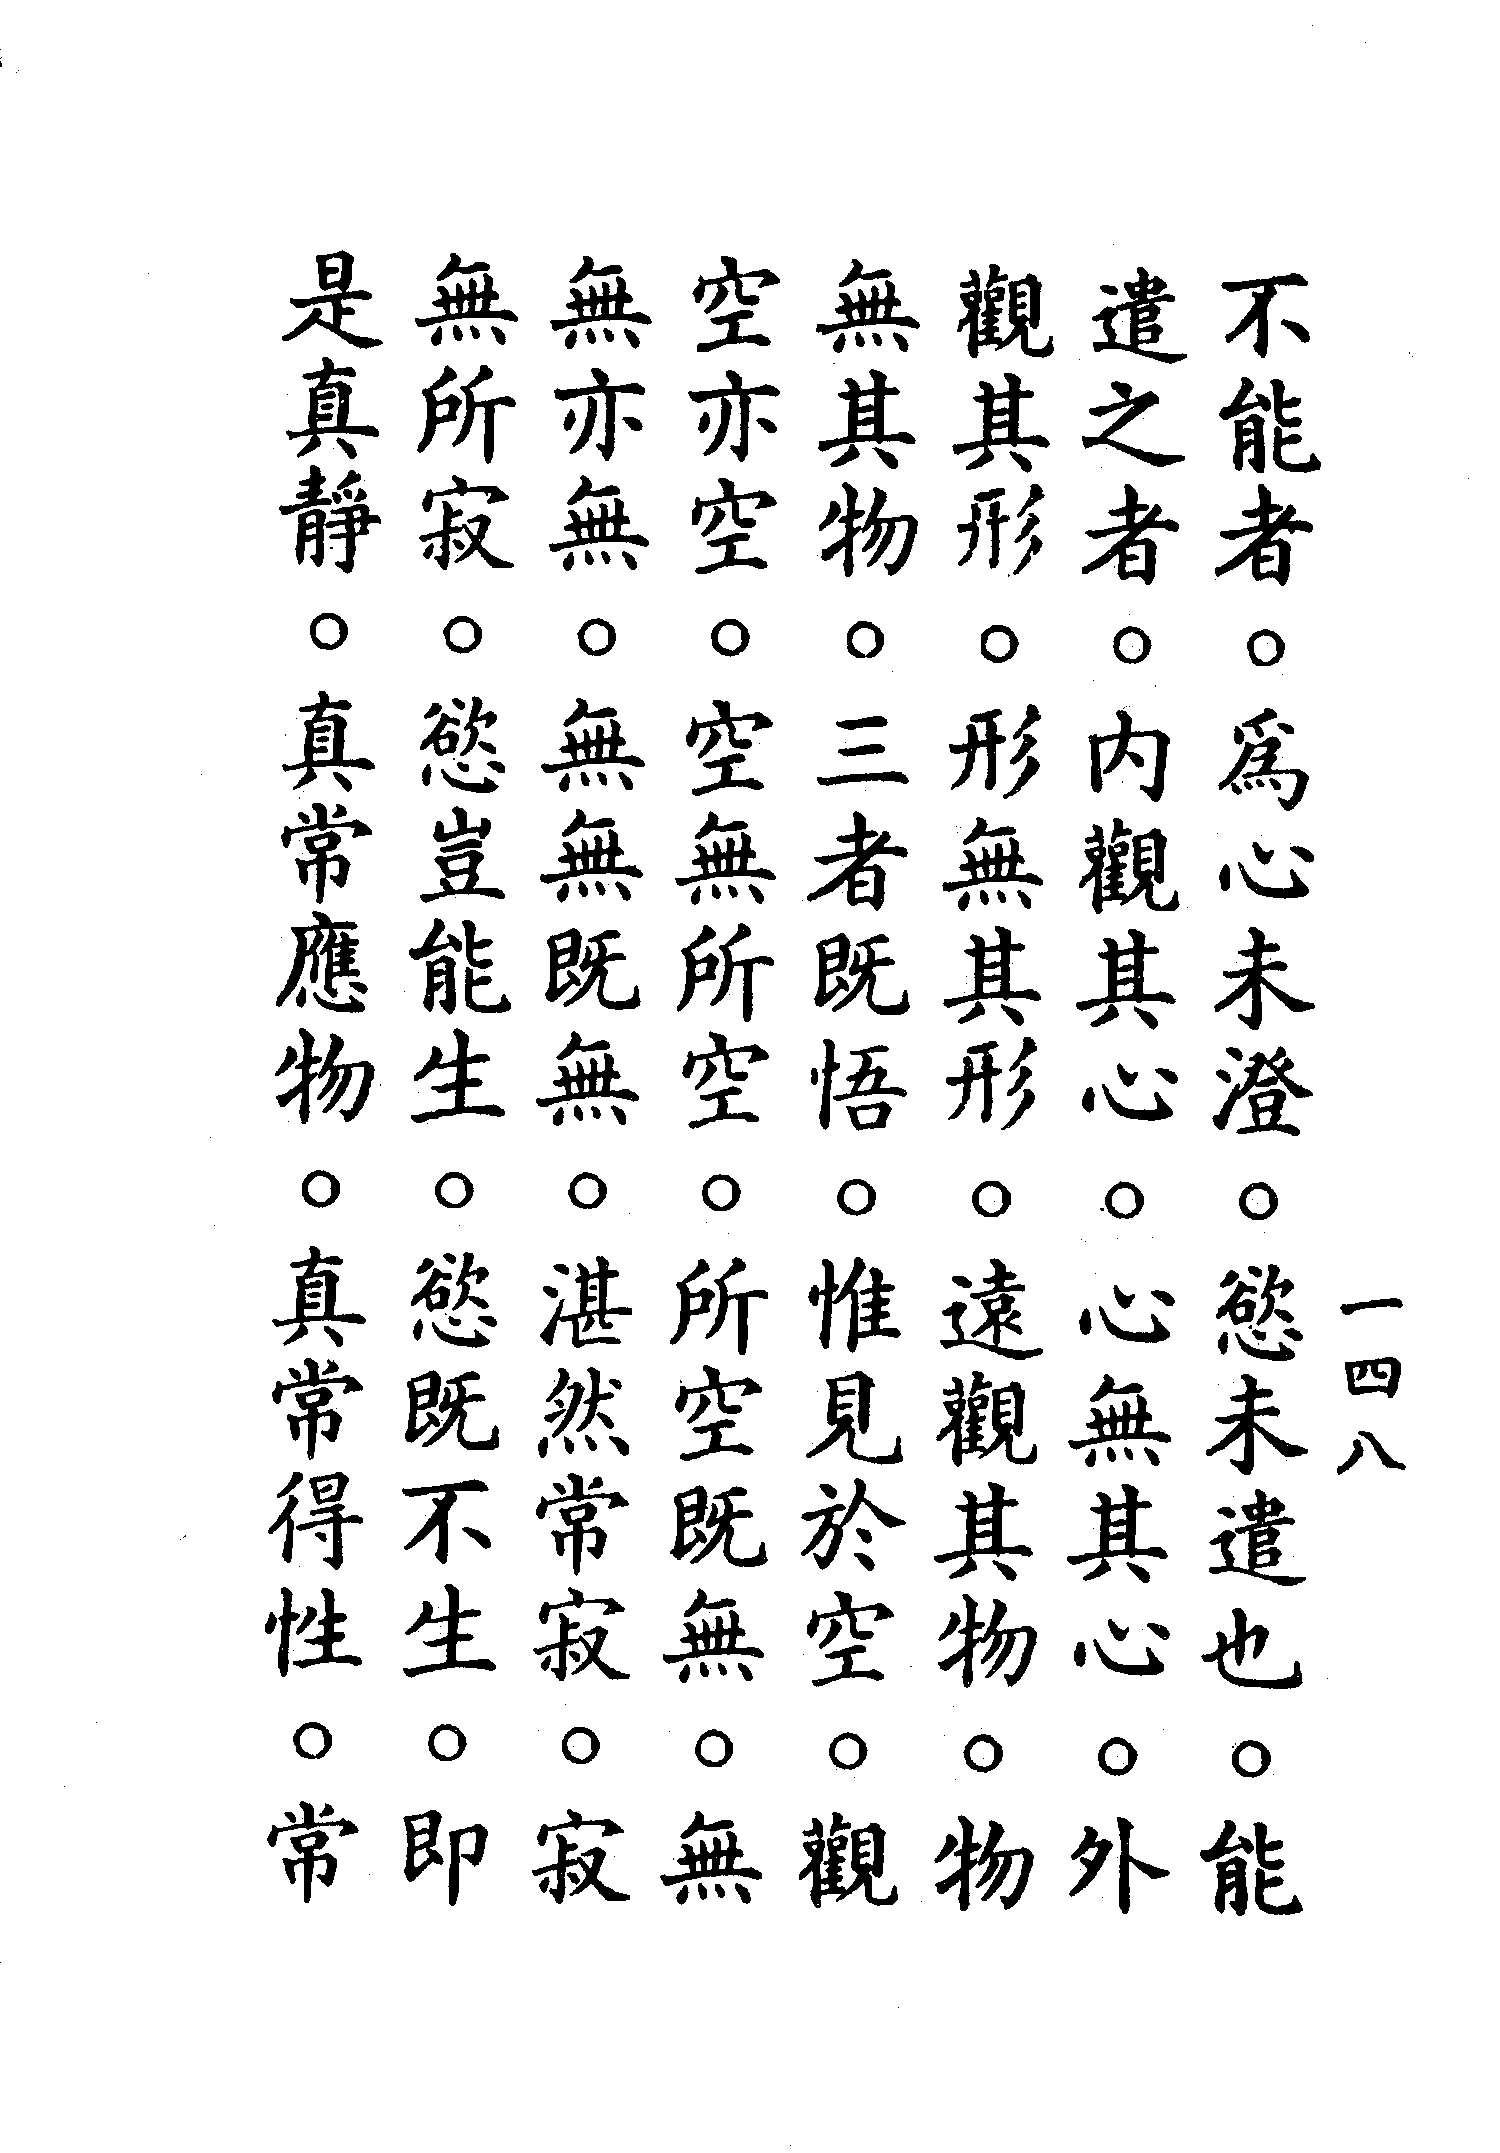 一四八
不能者。爲心未澄。慾未遣也。能
遣之者。内觀其心。心無其心。外
觀其形。形無其形。遠觀其物。物
無其物。三者既悟。惟見於空。觀
空亦空。空無所空。所空既無。無
無亦無。無無既無。湛然常寂。寂
無所寂。慾豈能生。慾既不生。即
是真靜。真常應物。真常得性。常